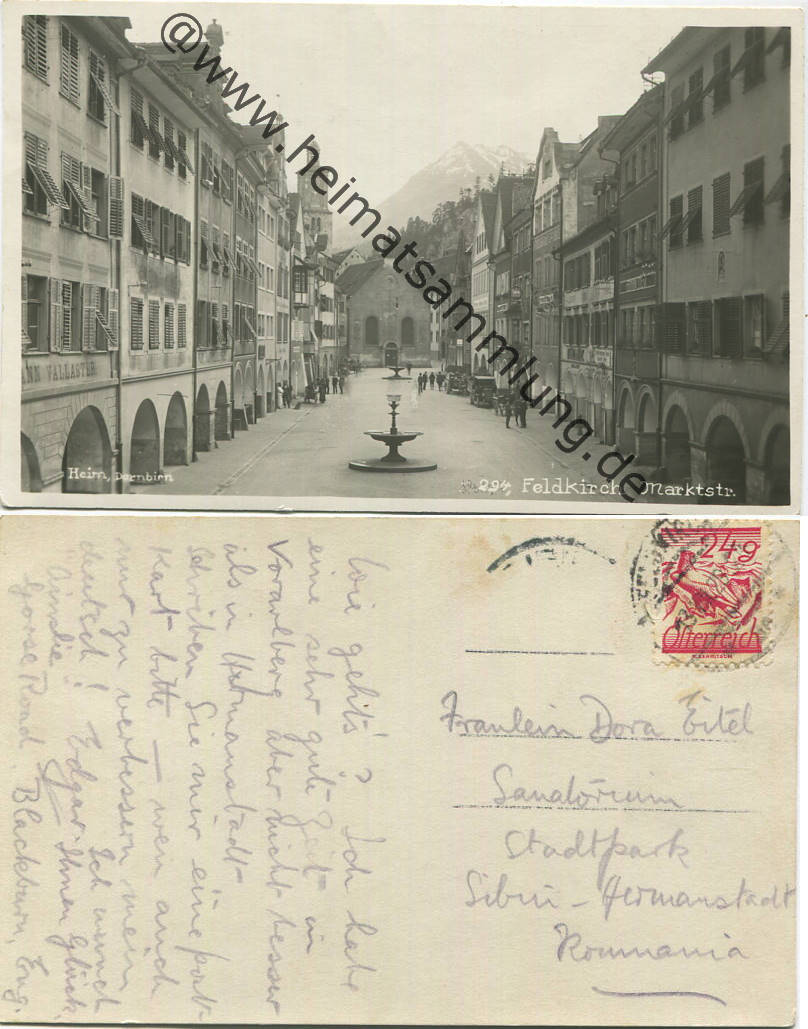 @www.heimatsammlung.de
ANN VALLASTER
Heim, Dornbirn
294, Feldkirch, Marktstr.
24g
Österreich
Wie gehts? Ich habe
eine sehr gute Zeit in
Vorarlberg aber nicht besser
als in Hermanstadt
Schriben Sie mir eine post-
Kart bitte — wen auch
nur zu verbessern mein
deutsch! Ich wunch
Edgar Ihnen Glück.
Ainslie
Gorse Road. Blackburn, Eng.
Fraulein Dora Eitel
Sanatórium
Stadtpark
Sibiu - Hermanstadt
Roumania